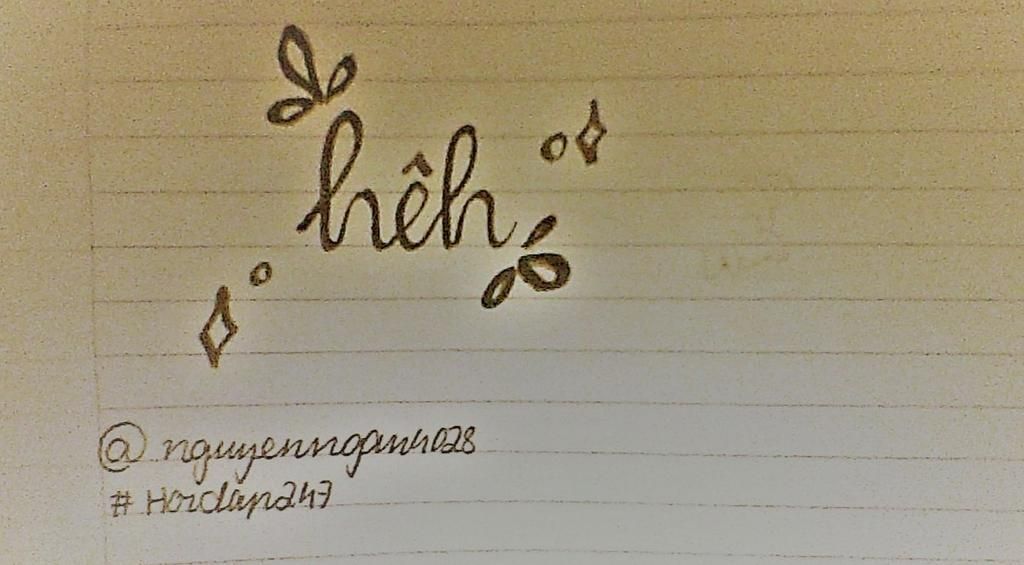 hêh
@ nguyenngan4028
# Hoidap247